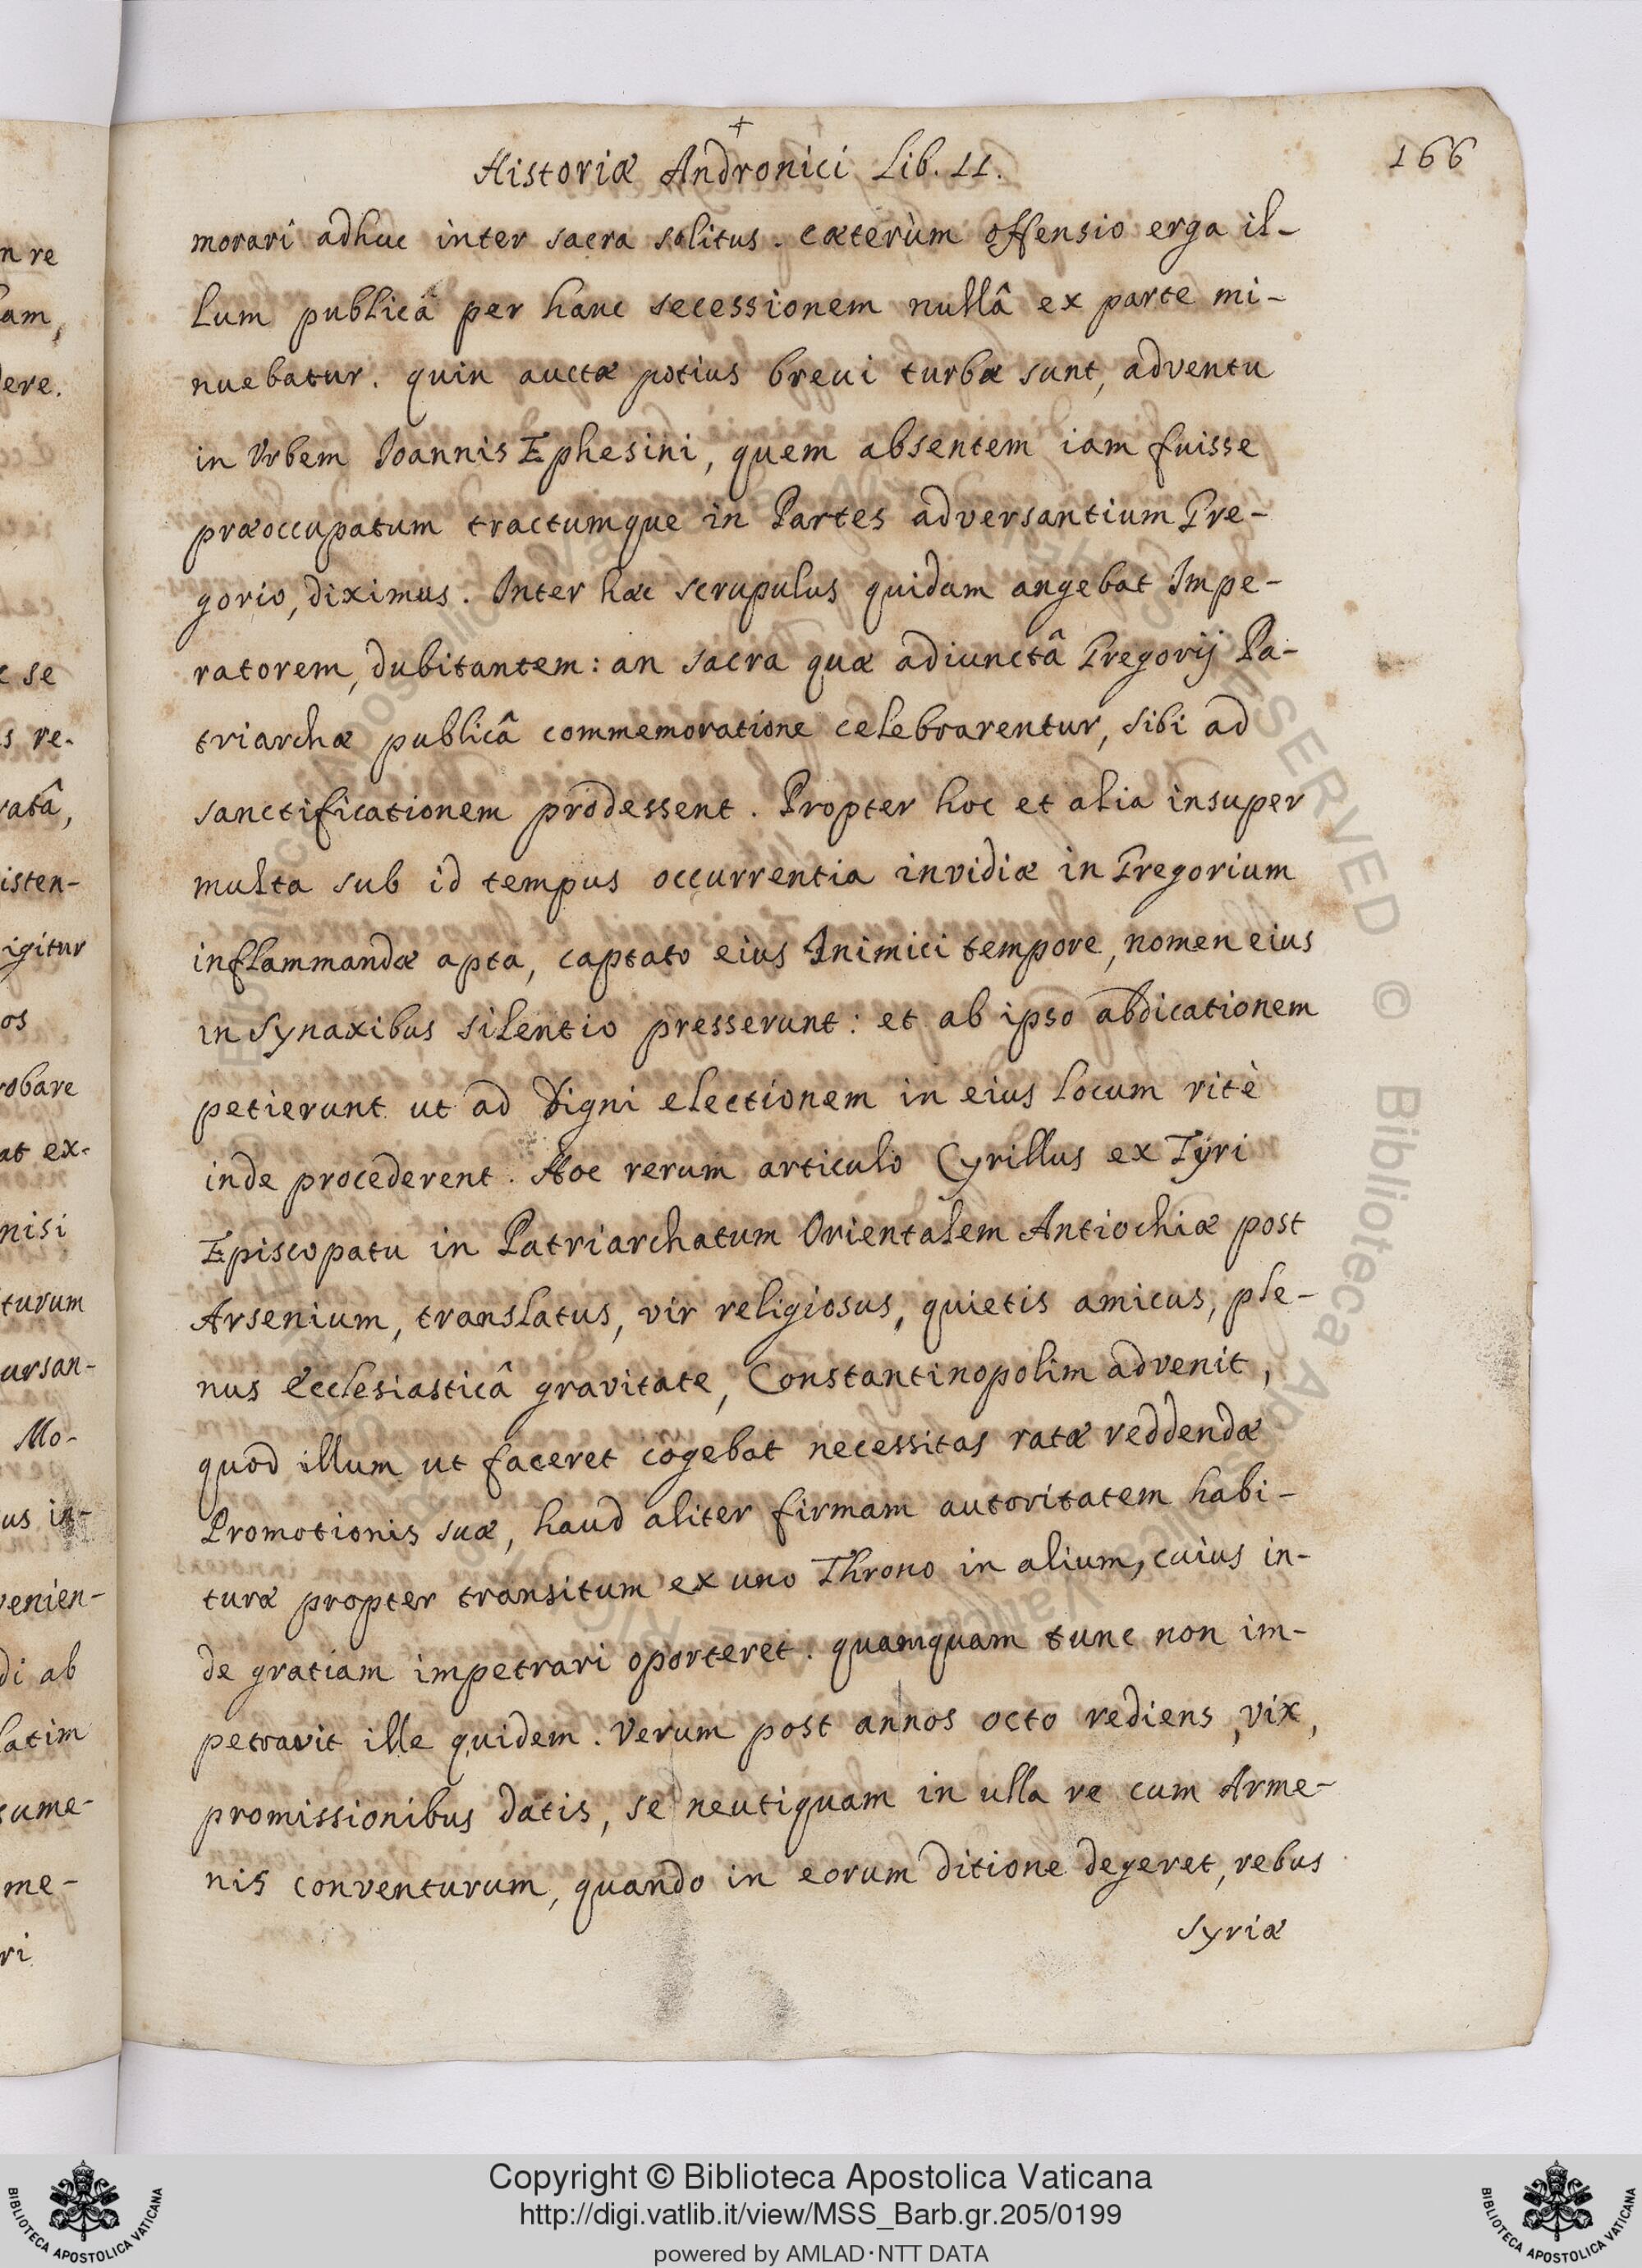 +
Historiæ Andronici Lib. II.
166
morari adhuc inter sacra solitus. cæterùm offensio erga il-
lum publica per hanc secessionem nullâ ex parte mi-
nuebatur. quin auctæ potius breui turbæ sunt, adventu
in Vrbem Ioannis Ephesini, quem absentem iam fuisse
præoccupatum tractumque in Partes adversantium Gre-
gorio, diximus. Inter hæc scrupulus quidam angebat Impe-
ratorem, dubitantem: an sacra quæ adiunctâ Gregorij Pa-
triarchæ publicâ commemoratione celebrarentur, sibi ad
sanctificationem prodessent. Propter hoc et alia insuper
multa sub id tempus occurrentia invidiæ in Gregorium
inflammandæ apta, captato eius Inimici tempore, nomen eius
in Synaxibus silentio presserunt: et ab ipso abdicationem
petierunt ut ad Digni electionem in eius locum ritè
inde procederent. Hoc rerum articulo Cyrillus ex Tyri
Episcopatu in Patriarchatum Orientalem Antiochiæ post
Arsenium, translatus, vir religiosus, quietis amicus, ple-
nus Ecclesiasticâ gravitate, Constantinopolim advenit,
quod illum ut faceret cogebat necessitas ratæ reddendæ
Promotionis suæ, haud aliter firmam autoritatem habi-
turæ propter transitum ex uno Throno in alium, cuius in-
de gratiam impetrari oporteret. quamquam tunc non im-
petravit ille quidem. Verum post annos octo rediens, vix,
promissionibus datis, se neutiquam in ulla re cum Arme-
nis conventurum, quando in eorum ditione degeret, rebus
Syriæ
n re
am,
dere.
se
s re-
ratâ,
isten-
igitur
os
robare
at ex-
nisi
turum
ursan-
Mo-
us in-
venien-
di ab
latim
sume-
me-
ri
Copyright © Biblioteca Apostolica Vaticana
http://digi.vatlib.it/view/MSS_Barb.gr.205/0199
powered by AMLAD·NTT DATA
BIBLIOTECA APOSTOLICA VATICANA
BIBLIOTECA APOSTOLICA VATICANA